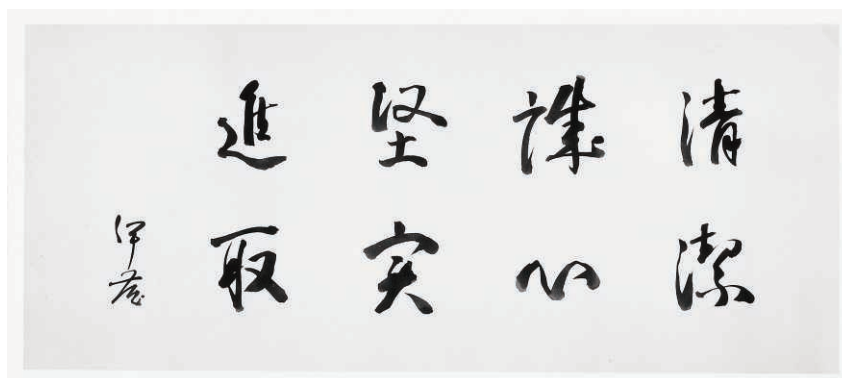 清潔
誠心
堅実
進取
伊彦